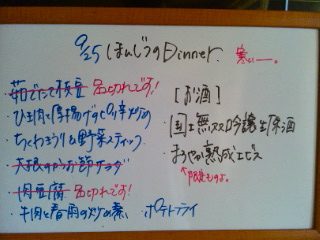 9/25 ほんじつのDinner. 寒い〜。
茹でたて枝豆 品切れです!
・ひき肉と厚揚げのピリ辛炒め
・ちくわきゅうり&野菜スティック
・大根のおかか節サラダ
・肉豆腐 品切れです!
・牛肉と春雨の炒め煮 ・ポテトフライ
[お酒]
・国士無双 吟醸生原酒
・まろやか熟成エビス
↑限定ものよ。